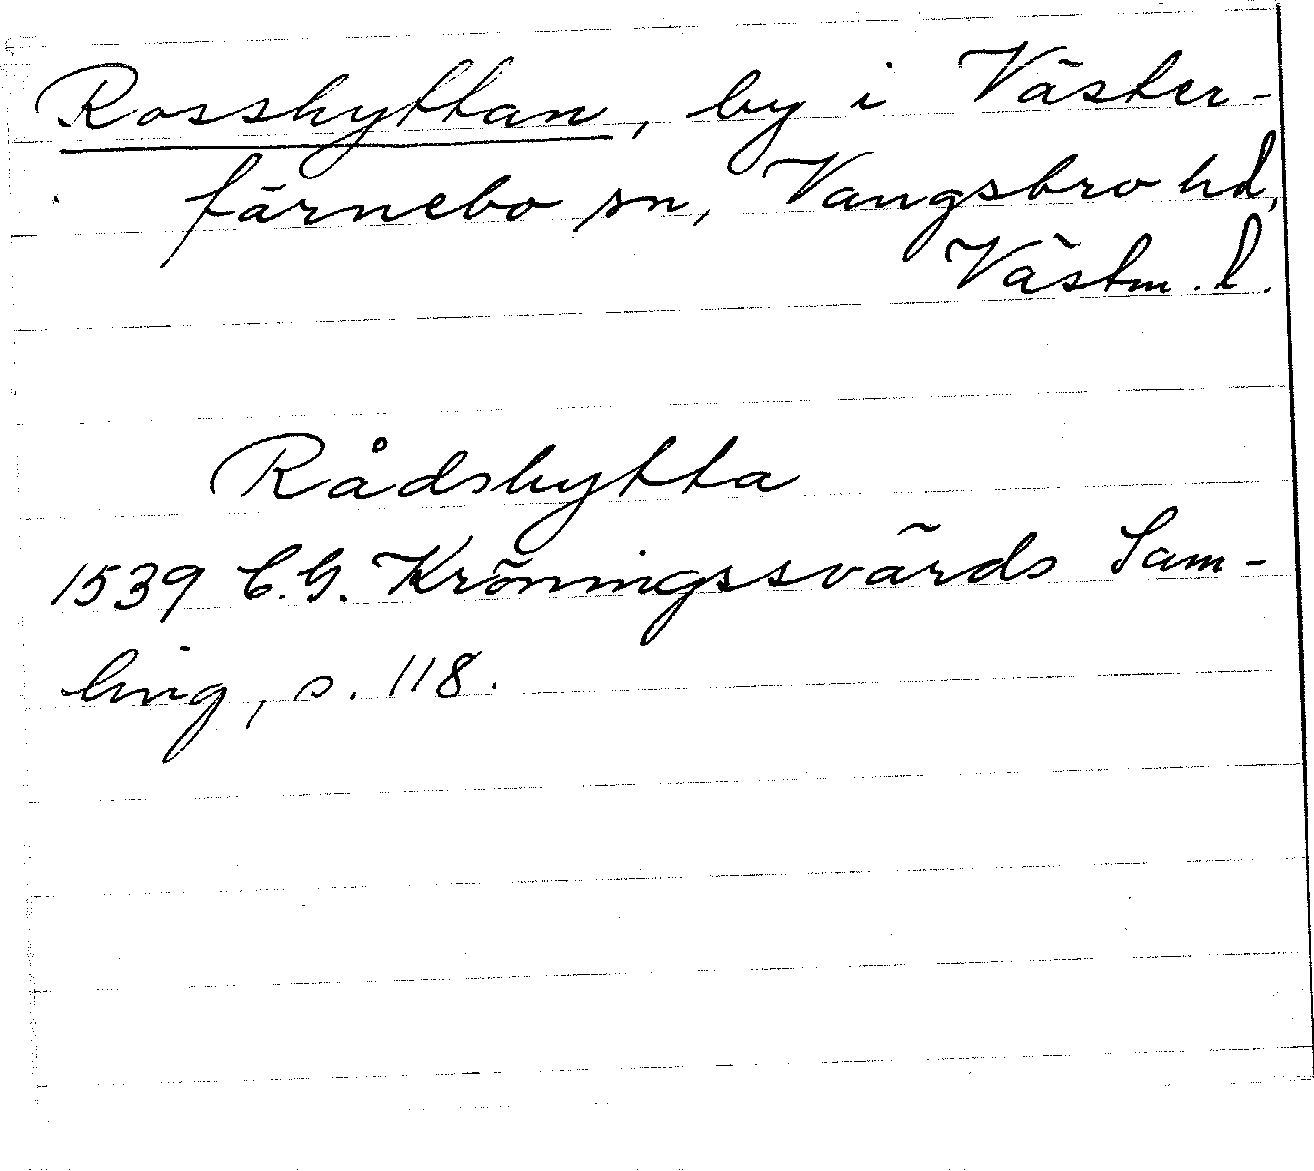 Rosshyttan, by i Väster-
färnebo sn, Vangsbro hd,
Västm. l.
Rådshytta
1539 C.G. Kröningssvärds Sam-
ling, s. 118.